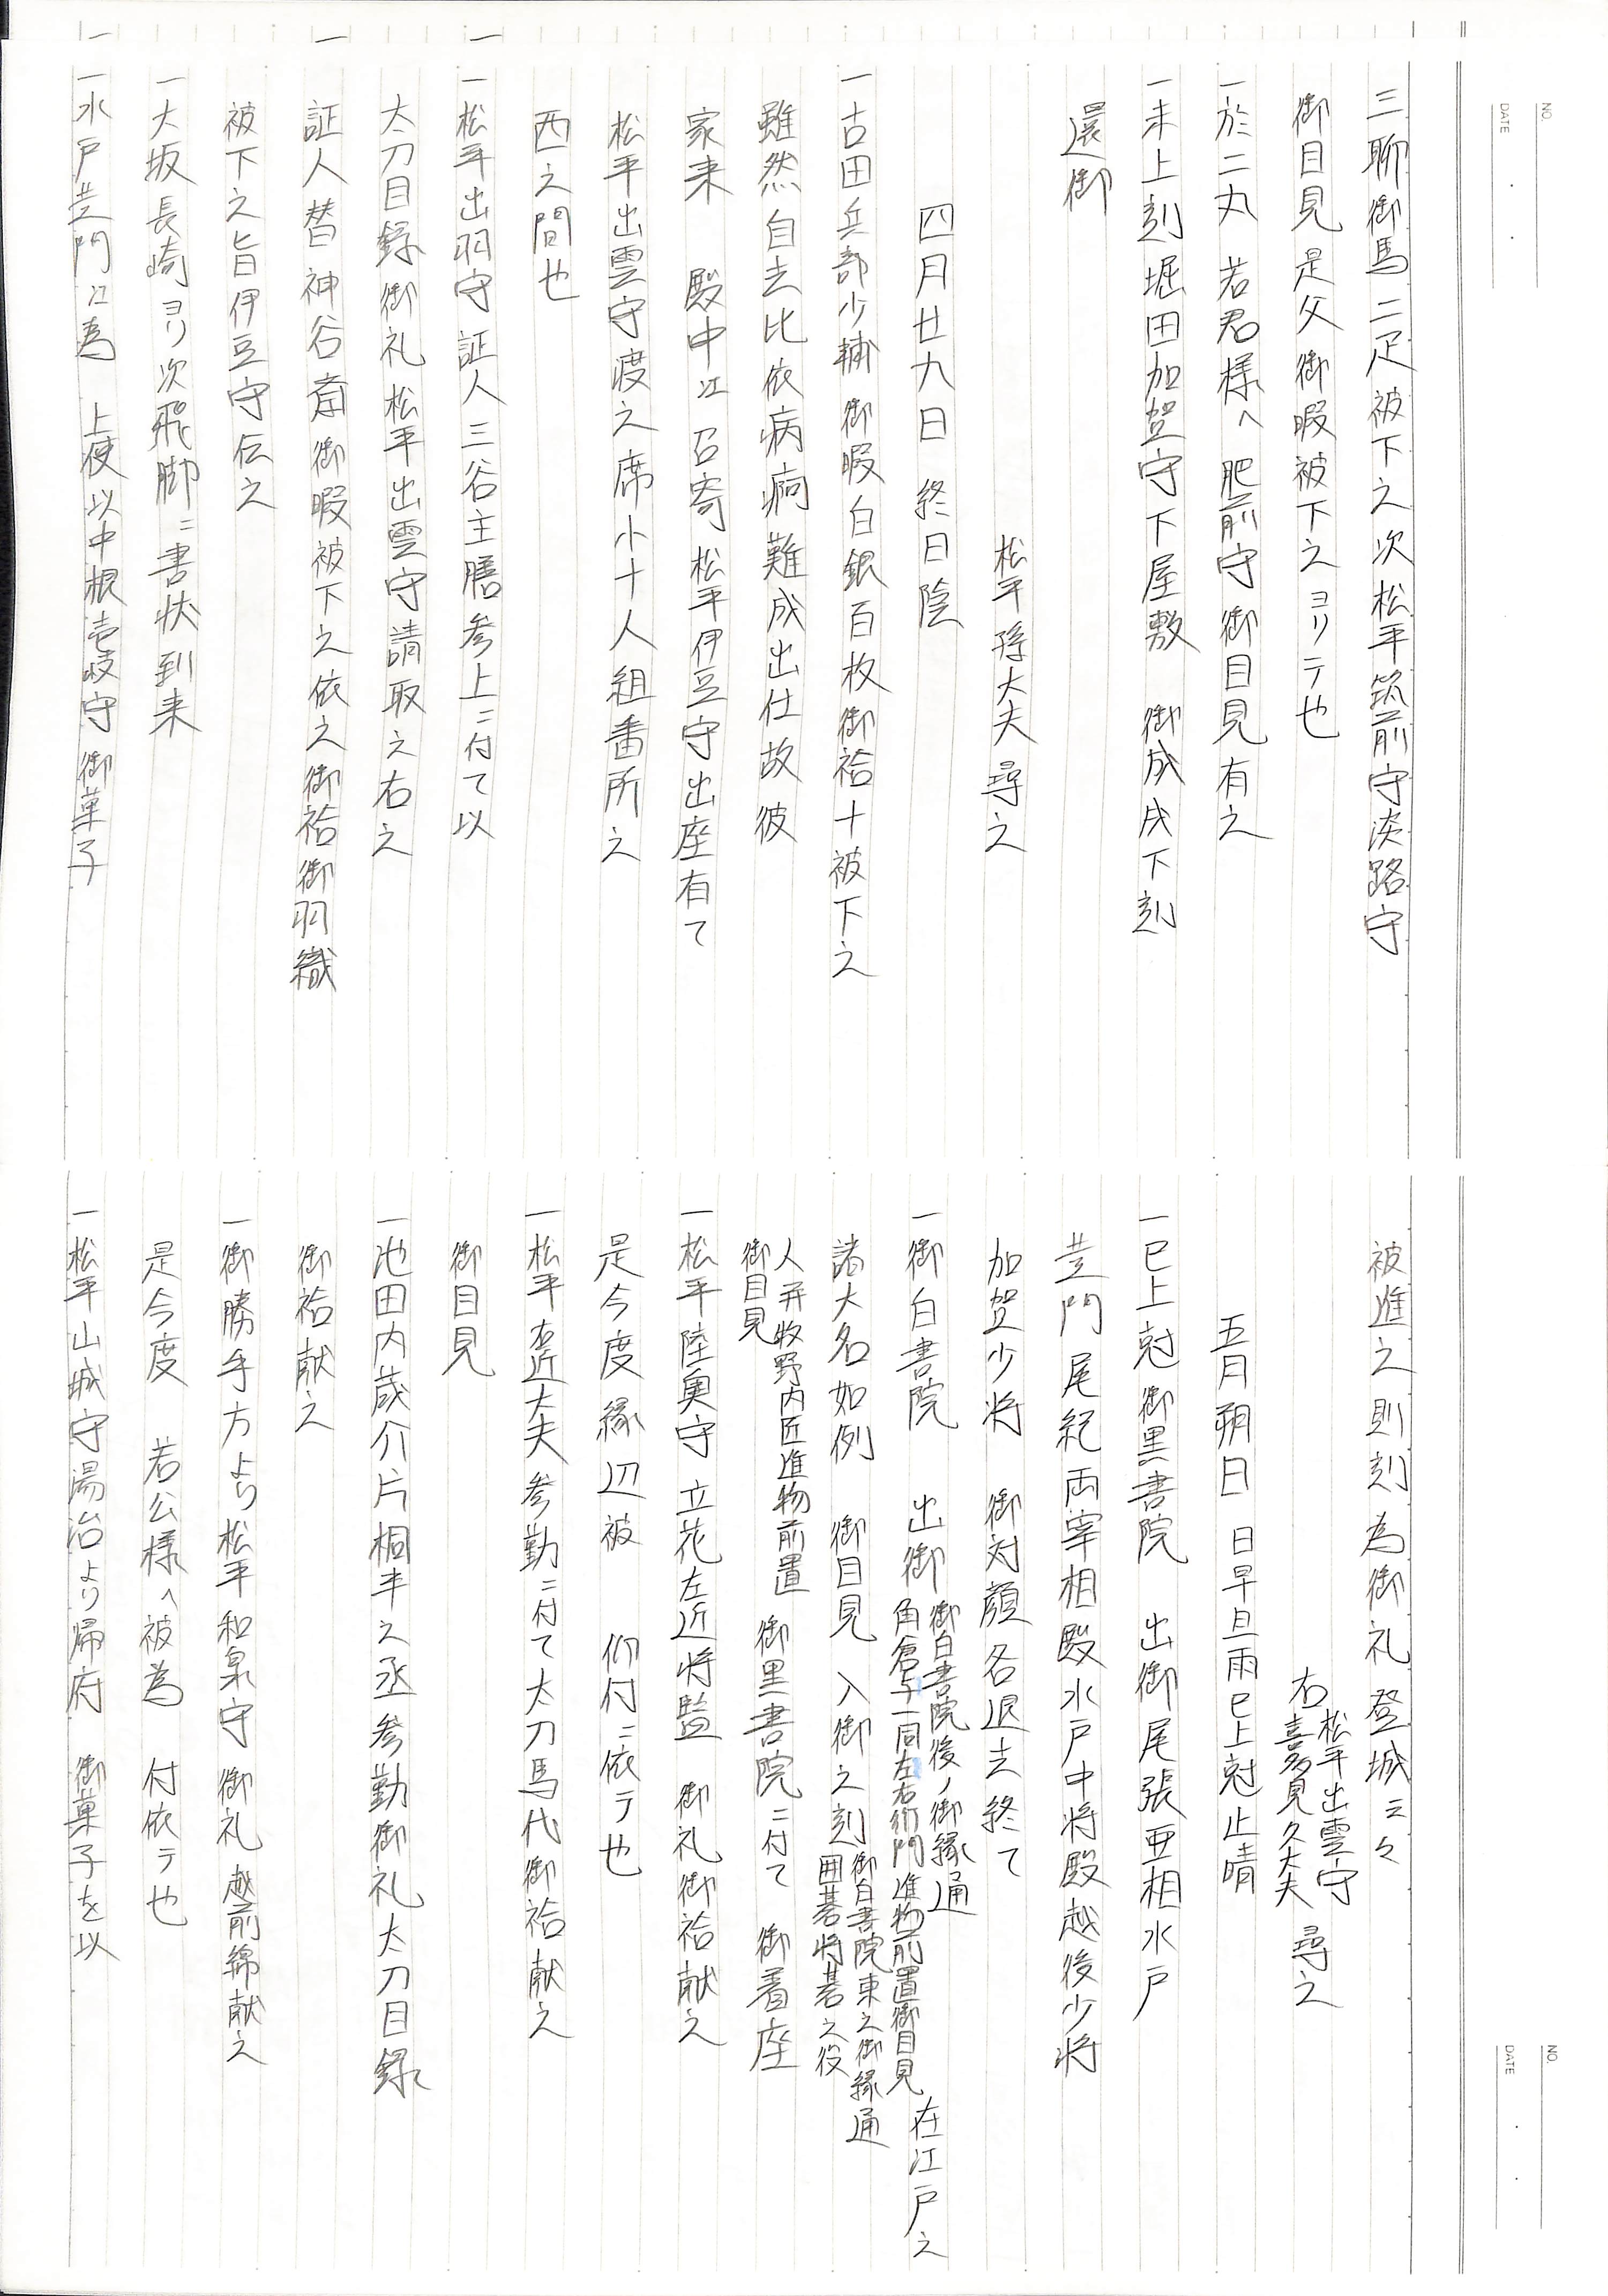 三聊御馬二疋被下之次松平筑前守淡路守
御目見是父御暇被下之ヨリテ也
一於二丸 若君様へ 肥前守御目見有之
一未上刻堀田加賀守下屋敷 御成戌下刻
還御
松平孫大夫 尋之
四月廿九日 終日陰
一古田兵部少輔御暇白銀百枚御袷十被下之
雖然自去比依病痾難成出仕故彼
家来 殿中江召寄松平伊豆守出座有て
松平出雲守渡之席小十人組番所之
西之間也
一松平出羽守証人三谷主膳参上ニ付て以
太刀目録御礼松平出雲守請取之右之
証人替神谷 御暇被下之依之御袷御羽織
被下之旨伊豆守伝之
一大坂長崎ヨリ次飛脚ニ書状到来
一水戸黄門江為 上使以中根壱岐守御菓子
被進之則刻為御礼登城云々
松平出雲守
右喜多見久大夫 尋之
五月朔日 日早旦雨巳上尅止晴
一巳上尅御黒書院 出御尾張亜相水戸
黄門尾紀両宰相殿水戸中将殿越後少将
加賀少将 御対顔各退去終て
一御白書院 出御 御白書院後ノ御縁通 角倉与一同左右衛門進物前置御目見 在江戸之
諸大名如例 御目見 入御之刻 御白書院東之御縁通 囲碁将碁之役
人并牧野内匠進物前置 御目見 御黒書院ニ付て 御着座
一松平陸奥守 立花左近将監 御礼御袷献之
是今度縁辺被 仰付ニ依テ也
一松平右近大夫参勤ニ付て太刀馬代御袷献之
御目見
一池田内蔵介片桐半之丞参勤御礼太刀目録
御袷献之
一御勝手方より松平和泉守御礼越前綿献之
是今度 若公様へ被為 付依テ也
一松平山城守湯治より帰府 御菓子を以
NO.
DATE
NO.
DATE